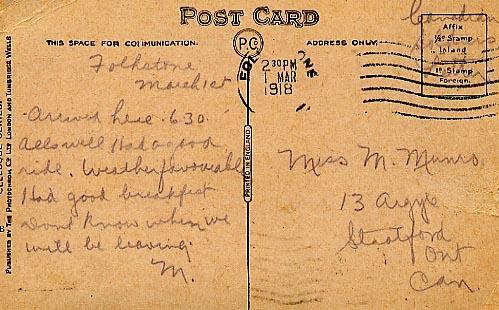 POST CARD
THIS SPACE FOR COMMUNICATION.
P.C
ADDRESS ONLY.
Affix
½d Stamp
Inland
1d Stamp
Foreign.
Canadian
2 30PM
1 MAR
1918
Folkstone
March 1st
Arrived here 6.30
All's well Had a good
ride. Weather favourable
Had good breakfast
Dont know when we
will be leaving.
M.
Miss M. Munro
13 Argyle
Stratford
Ont
Can.
PRINTED IN ENGLAND
PUBLISHED BY THE PHOTOCHROM CO LTD LONDON AND TUNBRIDGE WELLS